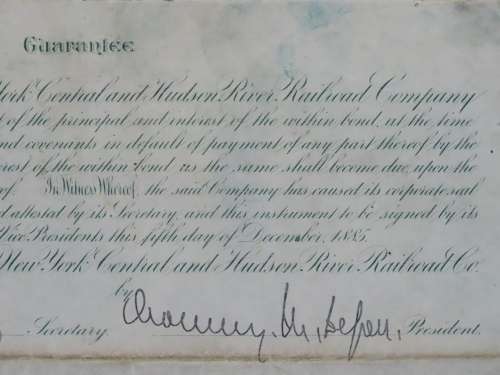 Guarantee
York Central and Hudson River Railroad Company
of the principal and interest of the within bond, at the time
nd covenants in default of payment of any part thereof by the
rest of the within bond as the same shall become due, upon the
eof. In Witness Whereof, the said Company has caused its corporate seal
d attested by its Secretary, and this instrument to be signed by its
Vice Presidents this fifth day of December, 1885.
New York Central and Hudson River Railroad Co.
by Chauncey M. Depew,
Secretary. President.